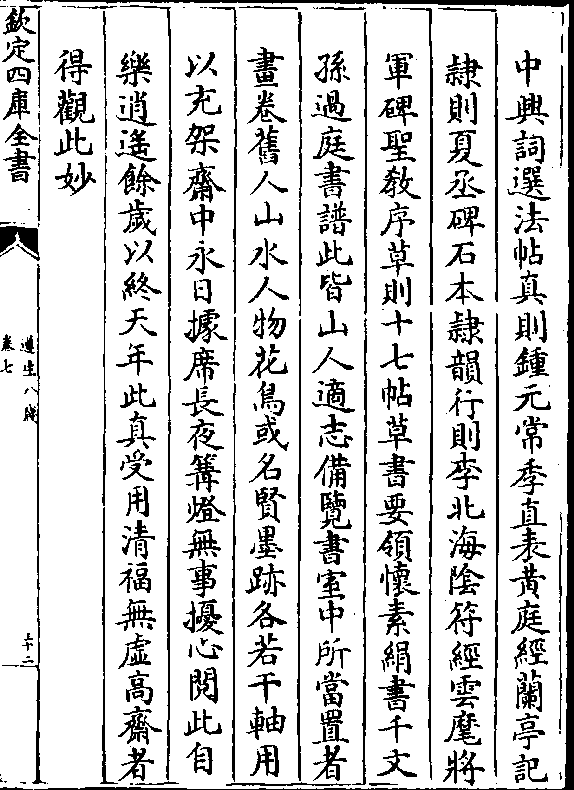 中興詞選法帖真則鍾元常季直表黄庭經蘭亭記
隷則夏丞碑石本隷韻行則李北海陰符經雲麾將
軍碑聖教序草則十七帖草書要領懷素絹書千文
孫過庭書譜此皆山人適志備覽書室中所當置者
畫卷舊人山水人物花鳥或名賢墨跡各若干軸用
以充架齋中永日據席長夜篝燈無事擾心閱此自
樂逍遥餘歲以終天年此真受用清福無虚高齋者
得觀此妙
欽定四庫全書
遵生八牋
卷七
三十二